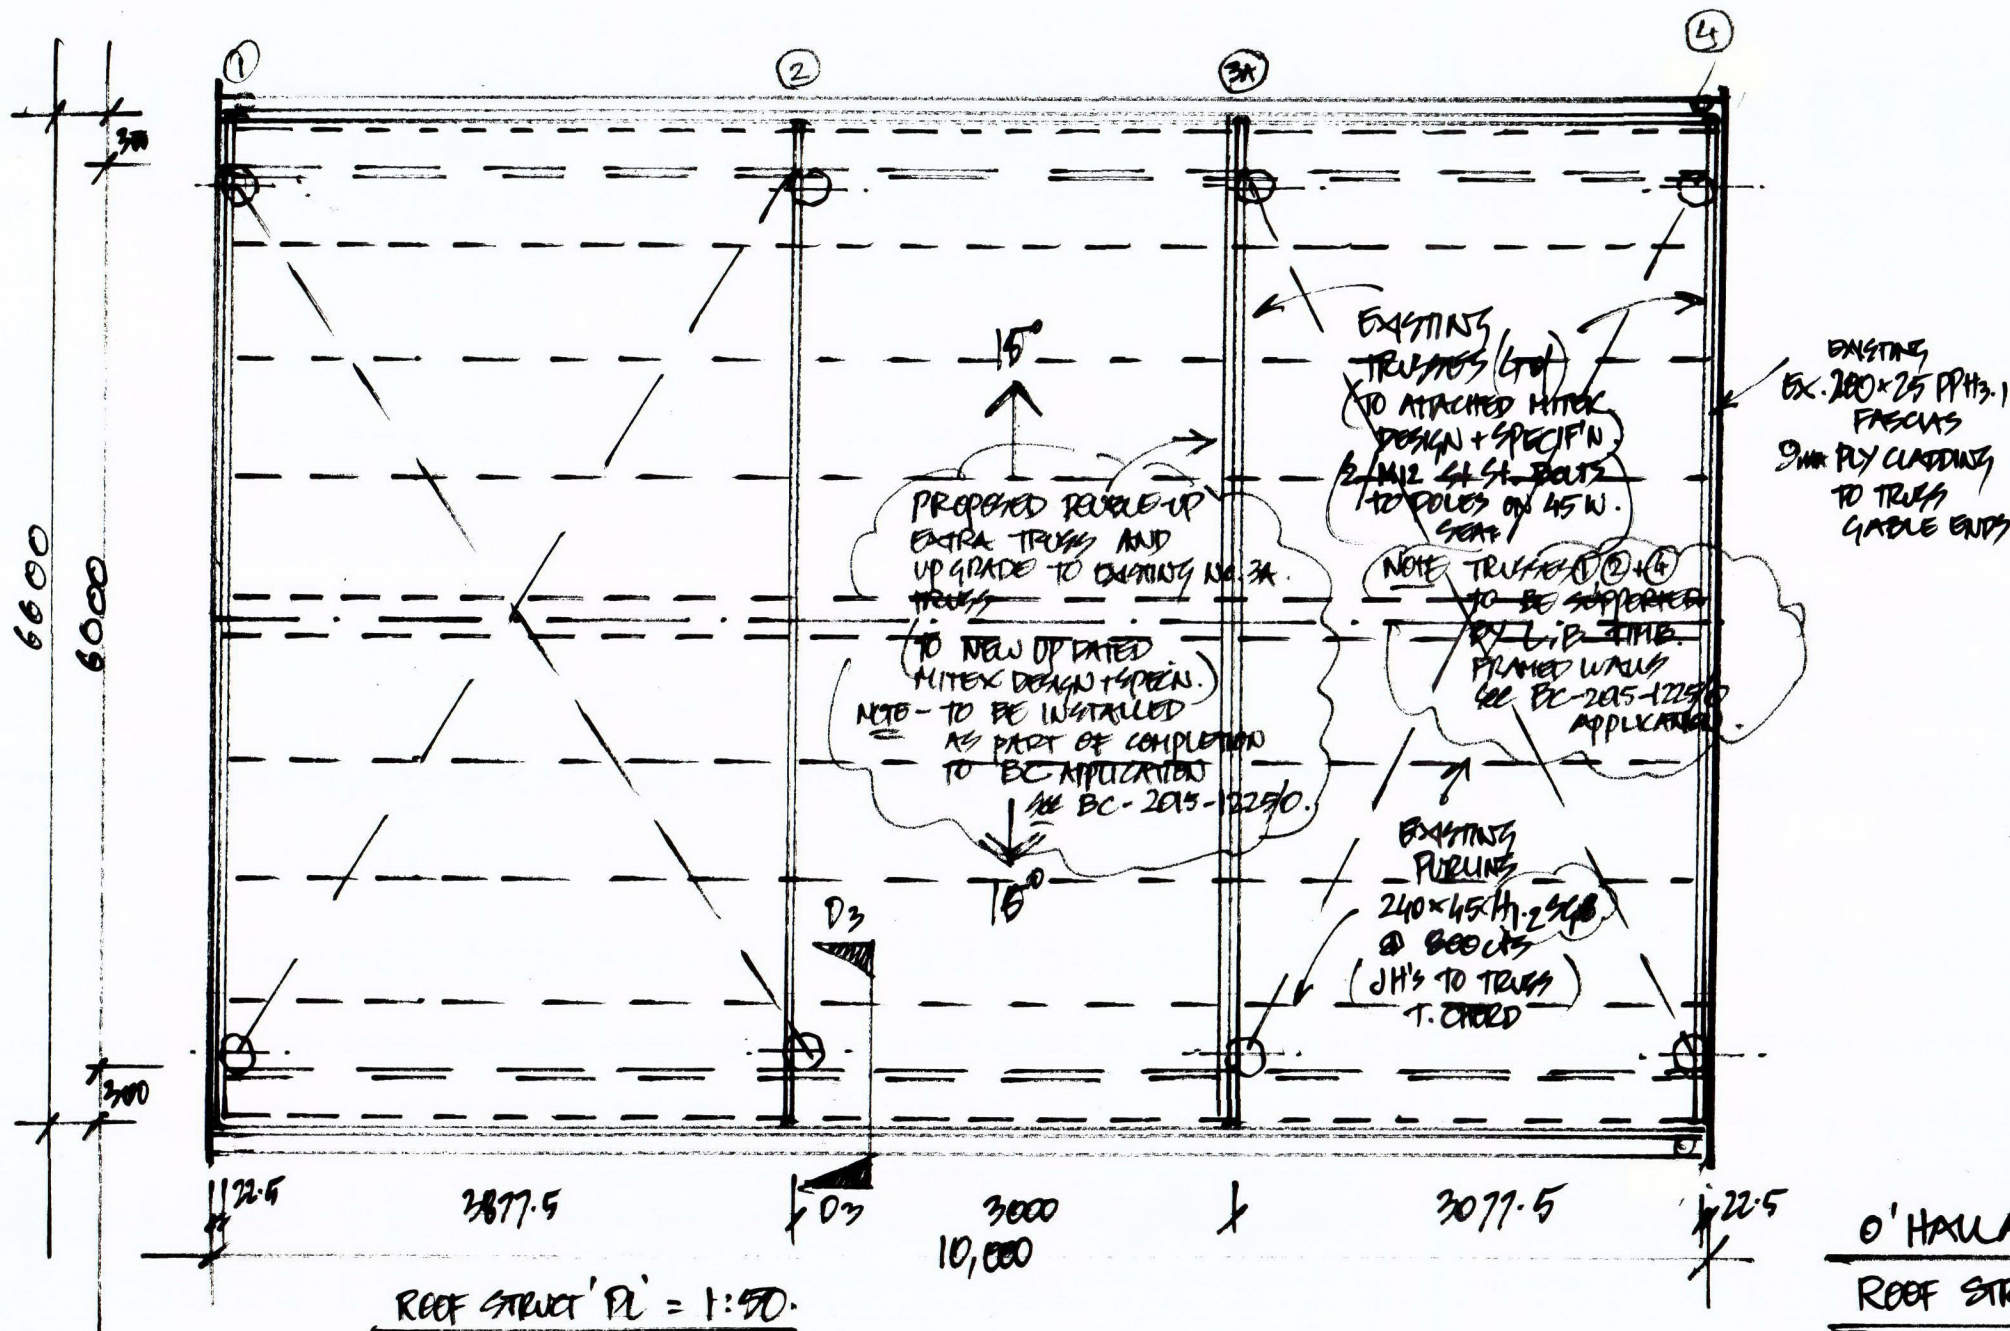 1
2
3A
4
300
6600
6000
300
15°
EXISTING
TRUSSES (GTO)
(TO ATTACHED MITEK
DESIGN + SPECIF'N)
2-M12 St St. BOLTS
TO POLES ON 45 W.
SEAT
EXISTING
EX. 200×25 PPH3.1
FASCIAS
9mm PLY CLADDING
TO TRUSS
GABLE ENDS
PROPOSED DOUBLE-UP
EXTRA TRUSS AND
UPGRADE TO EXISTING No. 3A.
TRUSS
(TO NEW UPDATED
MITEK DESIGN + SPECN.)
NOTE - TO BE INSTALLED
AS PART OF COMPLETION
TO BC APPLICATION
SEE BC-2015-1225/0.
NOTE TRUSSES 1 2 + 4
TO BE SUPPORTED
BY L.B. TIMB.
FRAMED WALLS
SEE BC-2015-1225/0
APPLICATION.
15°
EXISTING
PURLINS
240×45 H1.2 SG8
@ 800 CRS
(JH'S TO TRUSS)
T. CHORD
D3
D3
22.5
3877.5
3000
3077.5
22.5
10,000
ROOF STRUCT' PL' = 1:50.
O'HALLA
ROOF STR